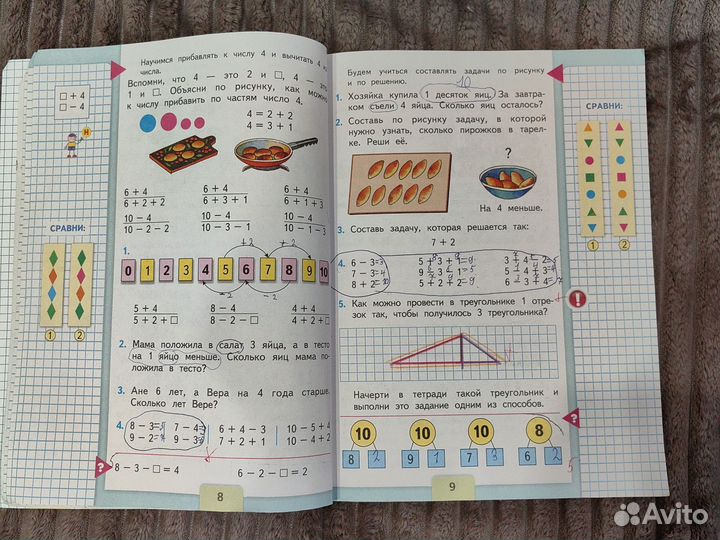 Научимся прибавлять к числу 4 и вычитать 4 из
числа.
Вспомни, что 4 — это 2 и □, 4 — это
1 и □. Объясни по рисунку, как можно
к числу прибавить по частям число 4.
□ + 4
□ − 4
Н
4 = 2 + 2
4 = 3 + 1
6 + 4 6 + 4 6 + 4
6 + 2 + 2 6 + 3 + 1 6 + 1 + 3
10 − 4 10 − 4 10 − 4
10 − 2 − 2 10 − 3 − 1 10 − 1 − 3
СРАВНИ:
1 2
1.
+2 +2
0 1 2 3 4 5 6 7 8 9 10
−2 −2
5 + 4 8 − 4 4 + 4
5 + 2 + □ 8 − 2 − □ 4 + 2 + □
2. Мама положила в салат 3 яйца, а в тесто
на 1 яйцо меньше. Сколько яиц мама по-
ложила в тесто?
3. Ане 6 лет, а Вера на 4 года старше.
Сколько лет Вере?
4. 8 − 3=5 7 − 4= 6 + 4 − 3 10 − 5 + 4
9 − 2= 9 − 3= 7 + 2 + 1 10 − 4 + 2
? 8 − 3 − □ = 4 6 − 2 − □ = 2
8
Будем учиться составлять задачи по рисунку
и по решению.
10
1. Хозяйка купила 1 десяток яиц. За завтра-
ком съели 4 яйца. Сколько яиц осталось?
2. Составь по рисунку задачу, в которой
нужно узнать, сколько пирожков в тарел-
ке. Реши её.
?
На 4 меньше.
СРАВНИ:
1 2
3. Составь задачу, которая решается так:
7 + 2
4. 6 − 3=3 5 + 3 + 1=9 3 + 4 − 2=5
7 − 3=4 9 − 3 − 1=5 5 − 4 + 3=4
8 + 2=10 5 + 2 + 2=9 6 − 3 + 4=7
5. Как можно провести в треугольнике 1 отре-
зок так, чтобы получилось 3 треугольника?
!
Начерти в тетради такой треугольник и
выполни это задание одним из способов.
?
10 10 10 8
8 2 9 1 7 3 6 2
5
9
Avito